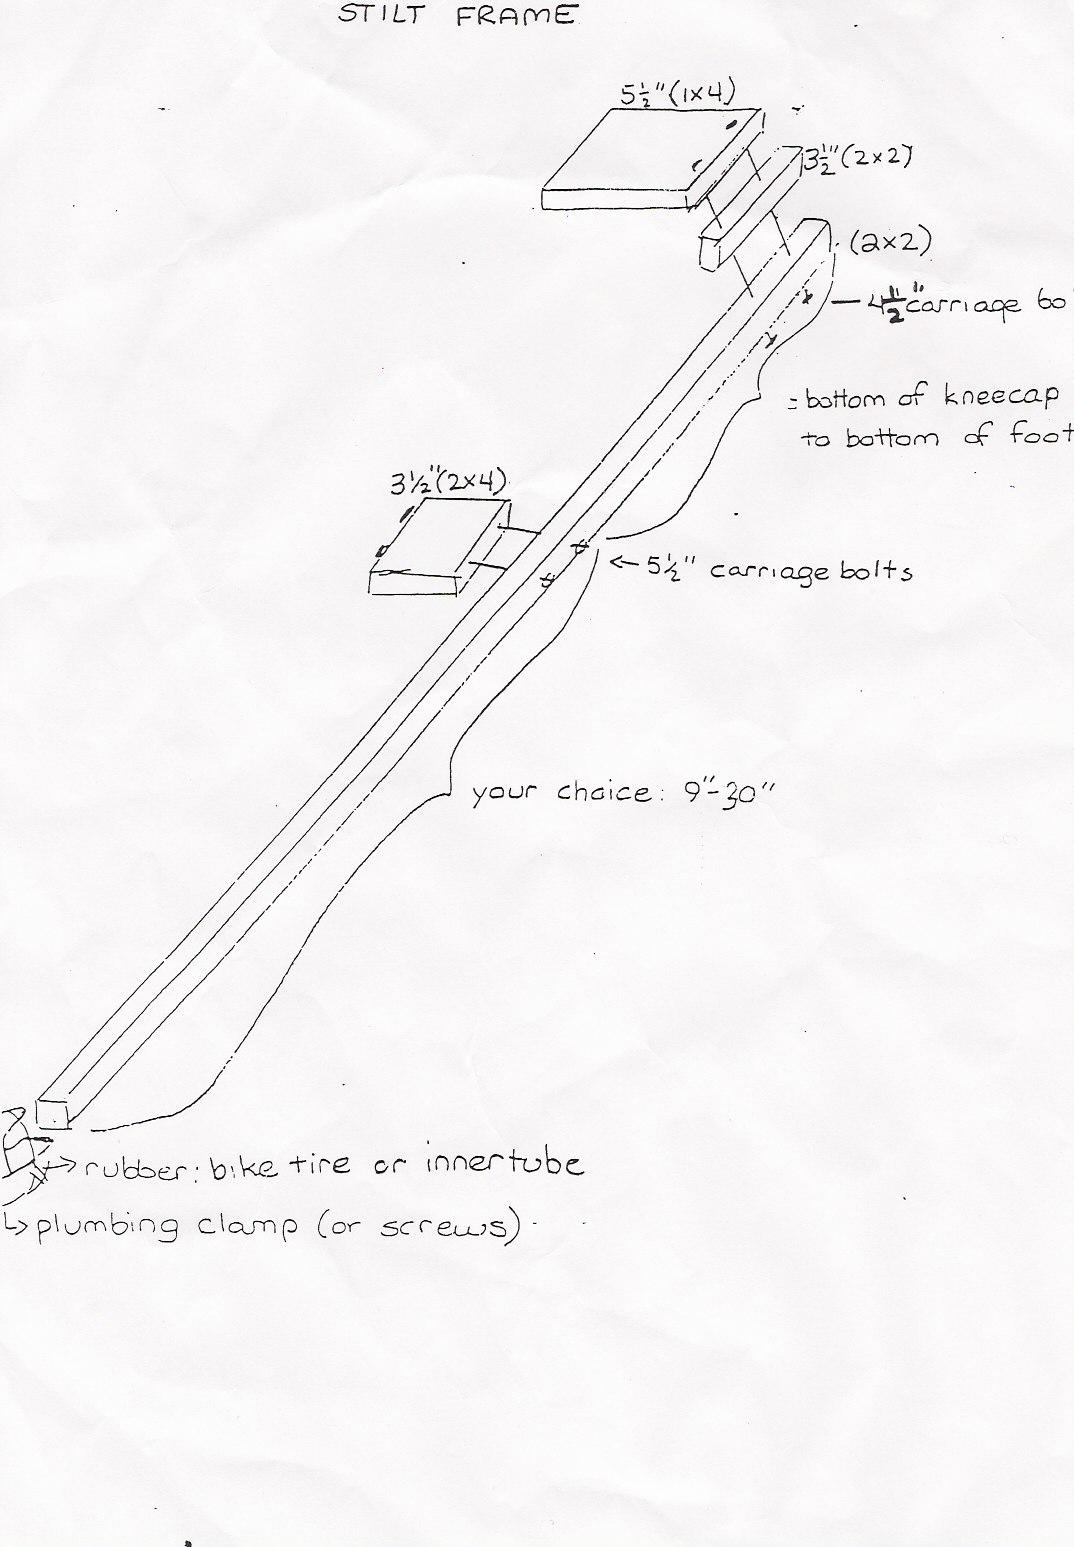 STILT FRAME
5½"(1x4)
3½"(2x2)
(2x2)
4½" carriage bo
= bottom of kneecap
to bottom of foot
3½"(2x4)
← 5½" carriage bolts
your choice: 9"-30"
rubber: bike tire or innertube
plumbing clamp (or screws)